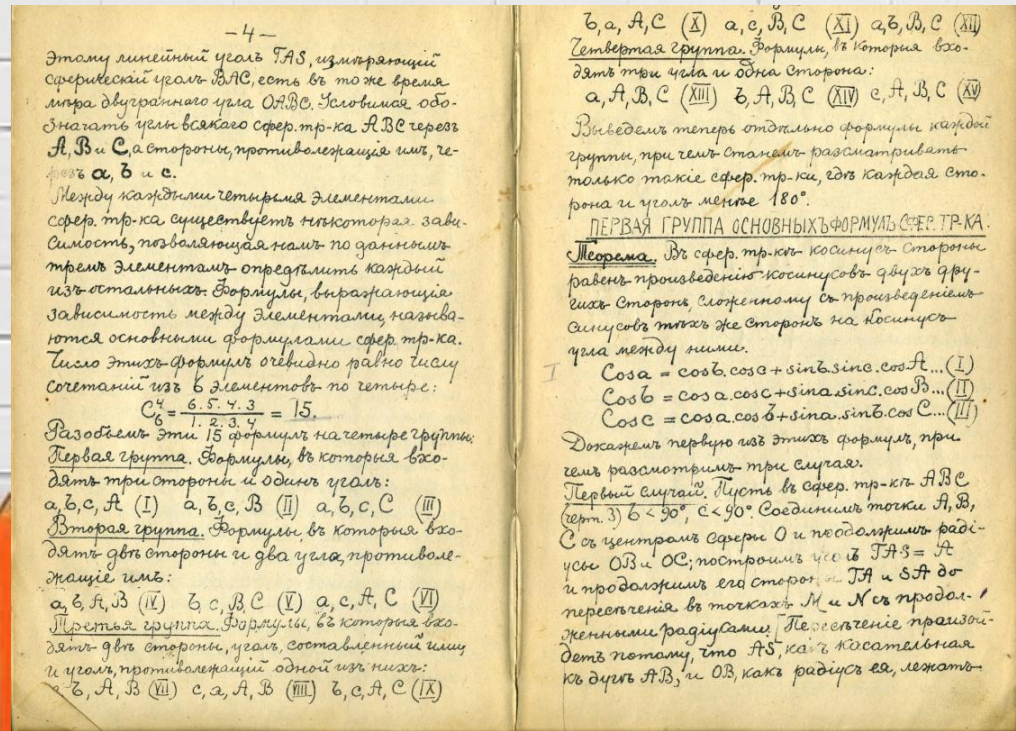 — 4 —
этому линейный уголъ TAS, измѣряющій
сферическій уголъ BAC, есть въ то же время
мѣра двуграннаго угла OABC. Условимся обо-
значать углы всякаго сфер. тр-ка ABC черезъ
A, B и C, а стороны, противолежащія имъ, че-
резъ a, b и c.
Между каждыми четырьмя элементами
сфер. тр-ка существуетъ нѣкоторая зави-
симость, позволяющая намъ по даннымъ
тремъ элементамъ опредѣлить каждый
изъ остальныхъ. Формулы, выражающія
зависимость между элементами, называ-
ются основными формулами сфер. тр-ка.
Число этихъ формулъ очевидно равно числу
сочетаній изъ 6 элементовъ по четыре:
C₆⁴ = 6. 5. 4. 3 / 1. 2. 3. 4 = 15.
Разобьемъ эти 15 формулъ на четыре группы:
Первая группа. Формулы, въ которыя вхо-
дятъ три стороны и одинъ уголъ:
a, b, c, A (I) a, b, c, B (II) a, b, c, C (III)
Вторая группа. Формулы, въ которыя вхо-
дятъ двѣ стороны и два угла, противоле-
жащіе имъ:
a, b, A, B (IV) b, c, B, C (V) a, c, A, C (VI)
Третья группа. Формулы, въ которыя вхо-
дятъ двѣ стороны, уголъ, составленный ими,
и уголъ, противолежащій одной изъ нихъ:
a, b, A, B (VII) c, a, A, B (VIII) b, c, A, C (IX)
b, a, A, C (X) a, c, B, C (XI) a, b, B, C (XII)
Четвертая группа. Формулы, въ которыя вхо-
дятъ три угла и одна сторона:
a, A, B, C (XIII) b, A, B, C (XIV) c, A, B, C (XV)
Выведемъ теперь отдѣльно формулы каждой
группы, при чемъ станемъ разсматривать
только такіе сфер. тр-ки, гдѣ каждая сто-
рона и уголъ менѣе 180°.
ПЕРВАЯ ГРУППА ОСНОВНЫХЪ ФОРМУЛЪ СФЕР. ТР-КА.
Теорема. Въ сфер. тр-кѣ косинусъ стороны
равенъ произведенію косинусовъ двухъ дру-
гихъ сторонъ, сложенному съ произведеніемъ
синусовъ тѣхъ же сторонъ на косинусъ
угла между ними.
Cosa = cosb. cosc + sinb. sinc. cosA... (I)
Cosb = cosa. cosc + sina. sinc. cosB... (II)
Cosc = cosa. cosb + sina. sinb. cosC... (III)
Докажемъ первую изъ этихъ формулъ, при
чемъ разсмотримъ три случая.
Первый случай. Пусть въ сфер. тр-кѣ ABC
(черт. 3) b < 90°, c < 90°. Соединимъ точки A, B,
C съ центромъ сферы O и продолжимъ раді-
усы OB и OC; построимъ уголъ TAS = A
и продолжимъ его стороны TA и SA до
пересѣченія въ точкахъ M и N съ продол-
женными радіусами. [Пересѣченіе произой-
детъ потому, что AS, какъ касательная
къ дугѣ AB, и OB, какъ радіусъ ея, лежатъ